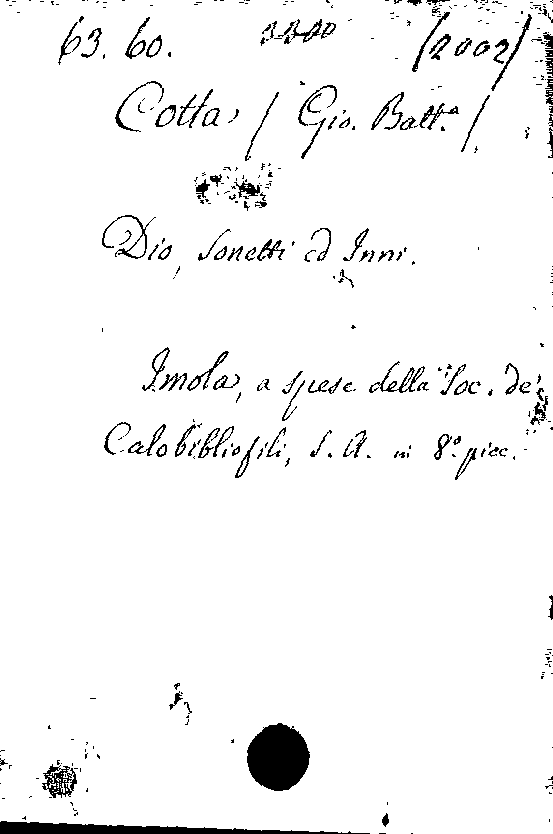 63. 60. 3300 (2002)
Cotta / Gio. Batt.a /
Dio, Sonetti ed Inni.
Imola, a spese della Soc. de'
Calobibliofili, S. A. in 8.o picc.